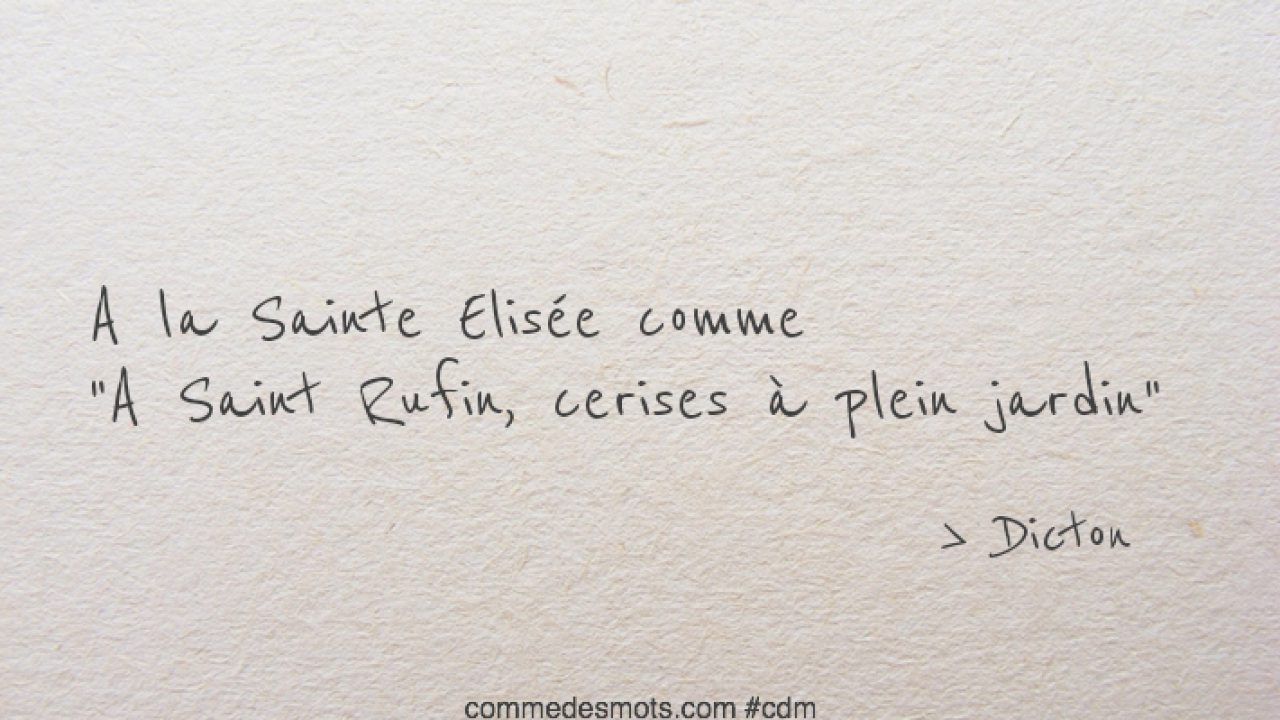 A la Sainte Elisée comme
"A Saint Rufin, cerises à plein jardin"
> Dicton
commedesmots.com #cdm